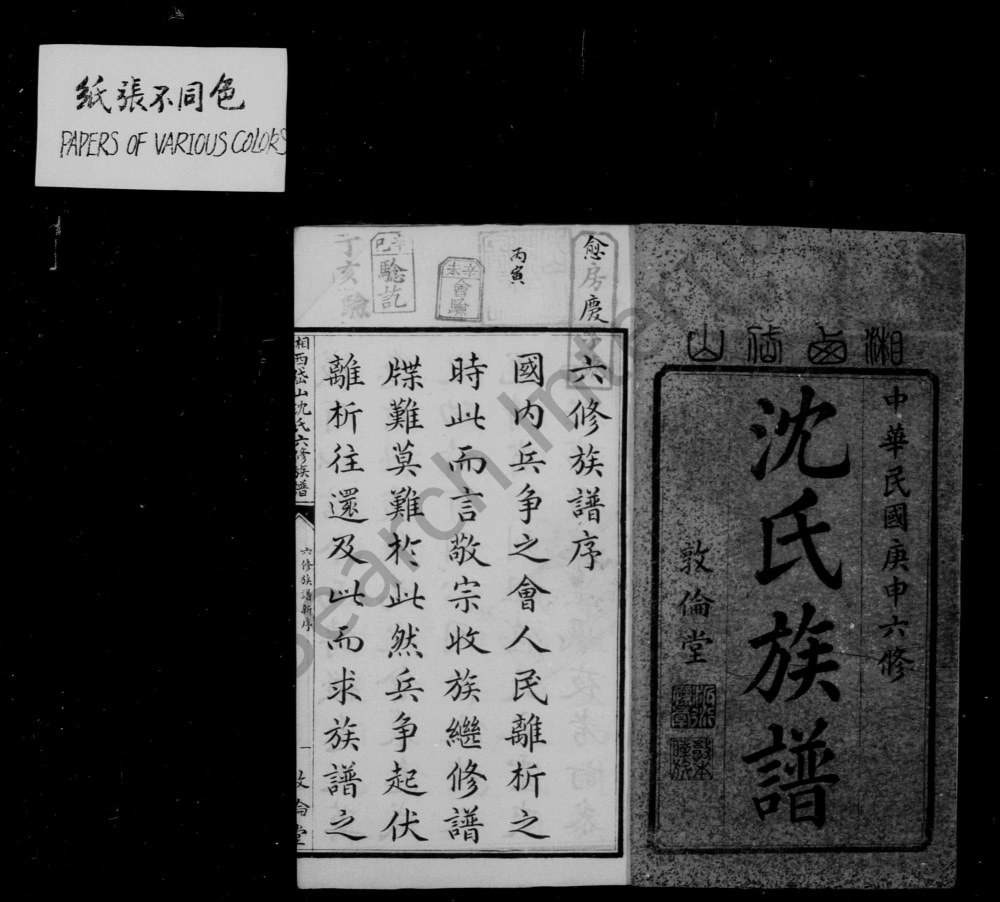 纸張不同色
PAPERS OF VARIOUS COLORS
湘西岱山
中華民國庚申六修
沈氏族譜
敦倫堂
愈房慶
丙寅
辛未
會驗
辛巳
驗訖
丁亥驗
六修族譜序
國內兵争之會人民離析之
時此而言敬宗收族繼修譜
牒難莫難於此然兵争起伏
離析往還及此而求族譜之
湘西岱山沈氏六修族譜
六修族譜新序
一
敦倫堂
Search Inter